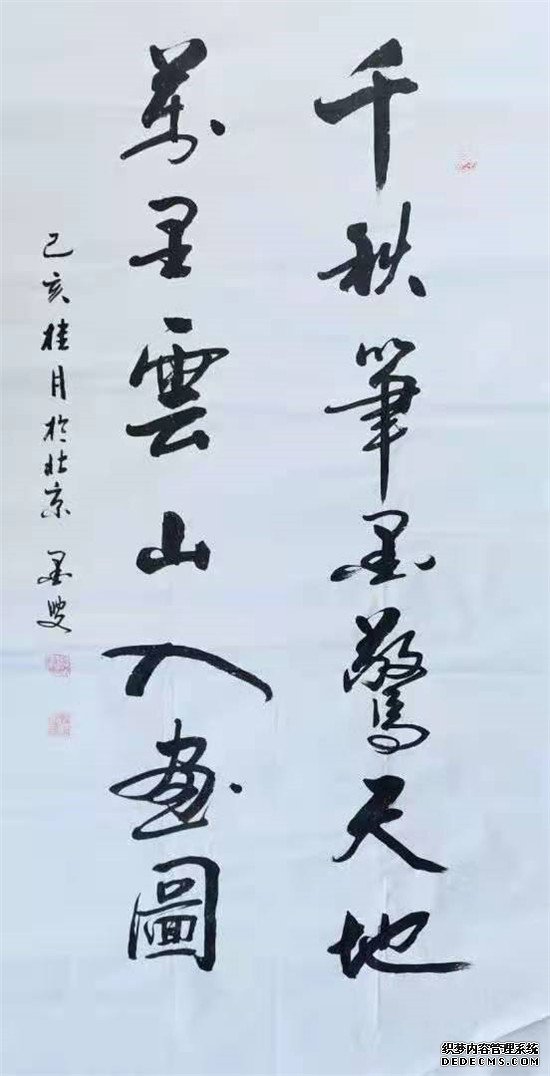 千秋筆墨驚天地
萬里雲山入畫圖
己亥桂月於北京 墨叟
织梦内容管理系统
DEDECMS.COM